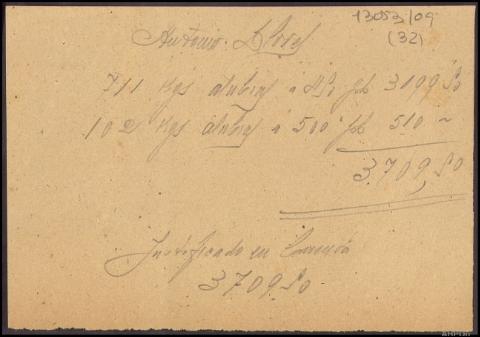 13053/09
(32)
Antonio
711 Kgs alubias a 4'50 pts 3199'50
102 Kgs alubias a 500 pts 510 ~
3.709,50
Justificado en
3709'50